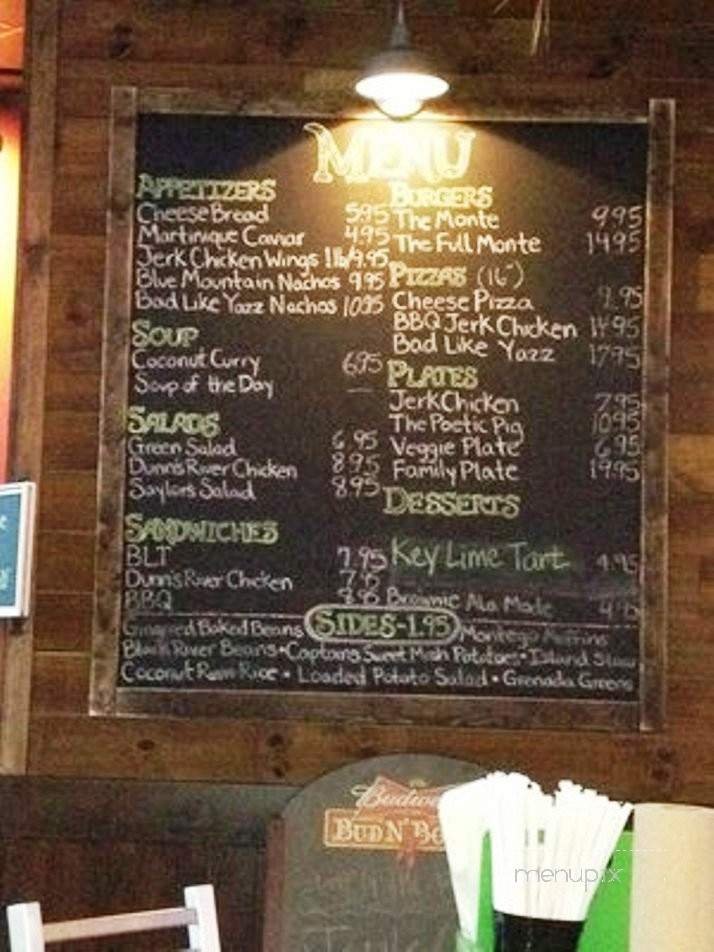 MENU
APPETIZERS
Cheese Bread 5.95
Martinique Caviar 4.95
Jerk Chicken Wings 1lb/9.95
Blue Mountain Nachos 9.95
Bad Like Yazz Nachos 10.95
SOUP
Coconut Curry 6.95
Soup of the Day
SALADS
Green Salad 6.95
Dunn's River Chicken 8.95
Saylors Salad 8.95
SANDWICHES
BLT 7.95
Dunn's River Chicken
BBQ 8.95
BURGERS
The Monte 9.95
The Full Monte 14.95
PIZZAS (16")
Cheese Pizza 9.95
BBQ Jerk Chicken 14.95
Bad Like Yazz 17.95
PLATES
Jerk Chicken 7.95
The Poetic Pig 10.95
Veggie Plate 6.95
Family Plate 19.95
DESSERTS
Key Lime Tart 4.95
Brownie Ala Mode 4.95
SIDES-1.95
Baked Beans Montego Muffins
Black River Beans • Captains Sweet Mash Potatoes • Island Slaw
Coconut Rum Rice • Loaded Potato Salad • Grenada Greens
BUD N' BO
menupix